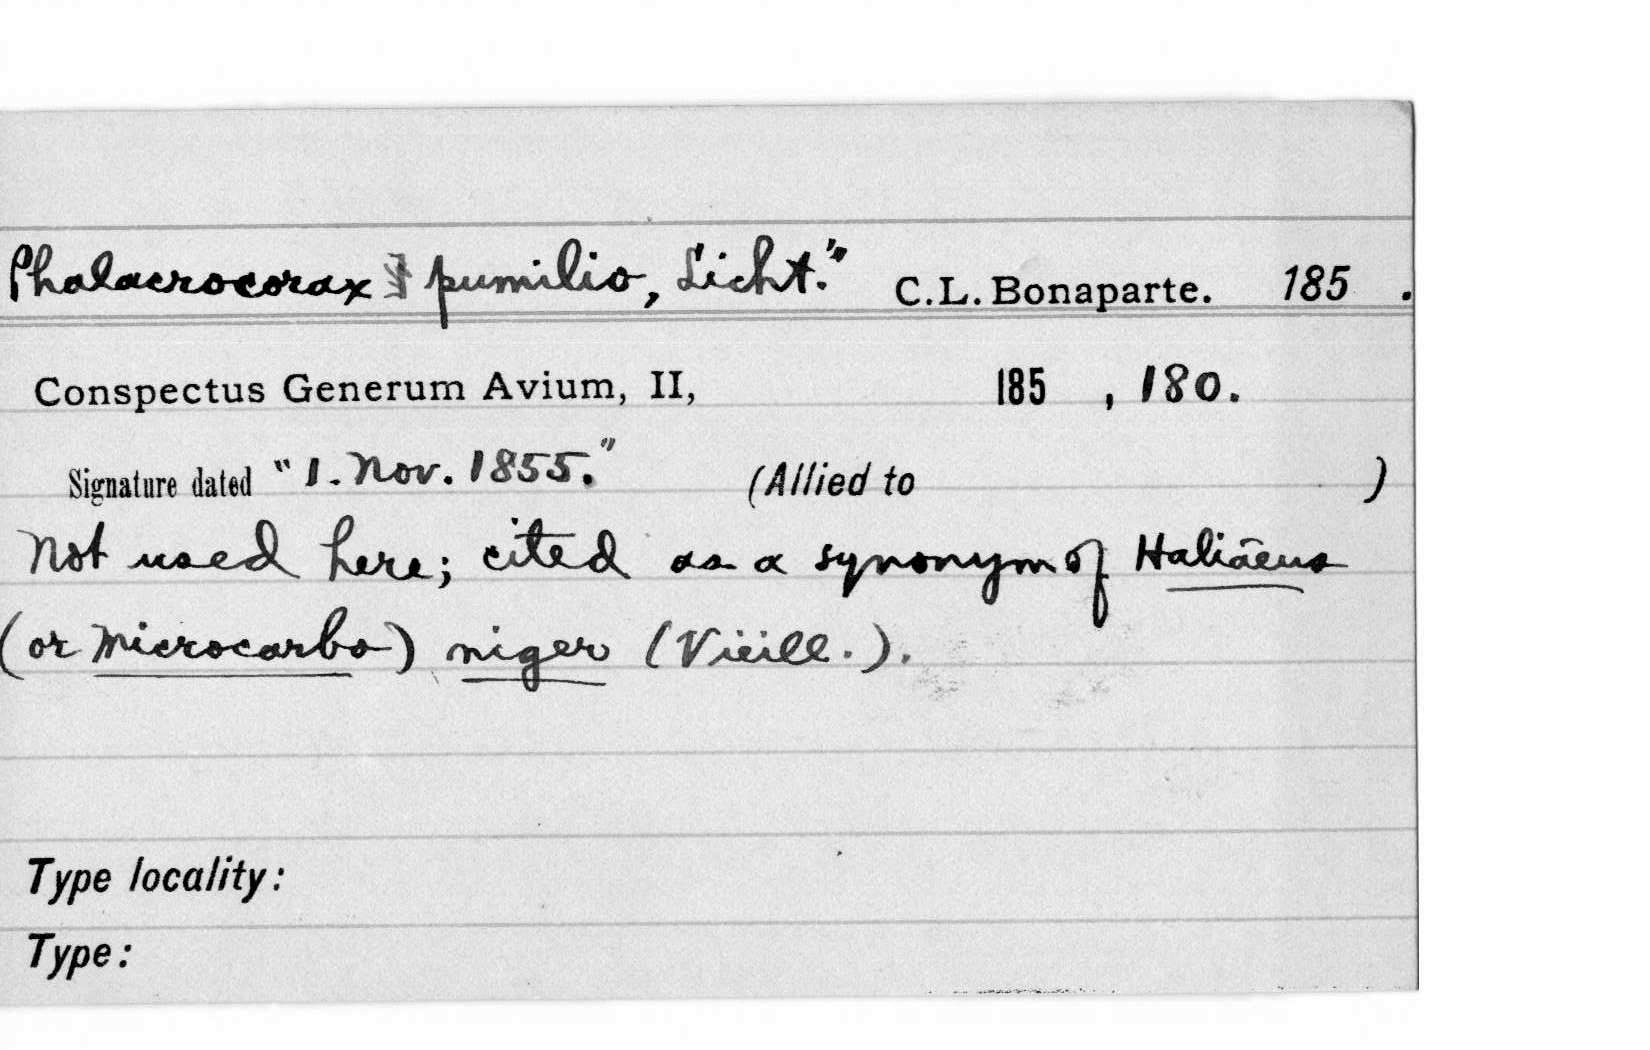 Phalacrocorax pumilio, Licht." C.L. Bonaparte. 185 .
Conspectus Generum Avium, II, 185 , 180.
Signature dated "1. Nov. 1855." (Allied to )
Not used here; cited as a synonym of Haliäeus
(or Microcarbo) niger (Vieill.).
Type locality:
Type: